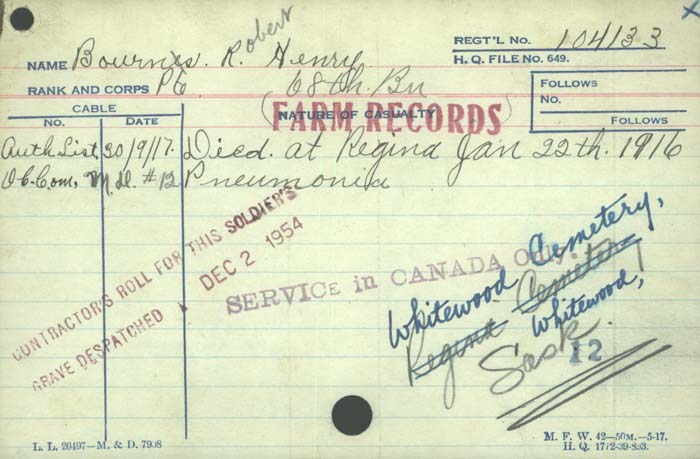 NAME Bournes. R. obert Henry
REGT'L No. 104133
H. Q. FILE No. 649.
RANK AND CORPS Pte 68th. Bn
CABLE
No. DATE
(NATURE OF CASUALTY)
FARM RECORDS
FOLLOWS
No.
FOLLOWS
Auth. List 30/9/17. Died. at Regina Jan 22th. 1916
O.C. Com, M.D. #12 Pneumonia
CONTRACTOR'S ROLL FOR THIS SOLDIER'S
GRAVE DESPATCHED DEC 2 1954
SERVICE in CANADA Only.
Whitewood Cemetery,
Regina Cemetery
Whitewood,
Sask.
12
L. L. 20497—M. & D. 7908
M. F. W. 42—50M.—5-17.
H. Q. 1772-39-893.